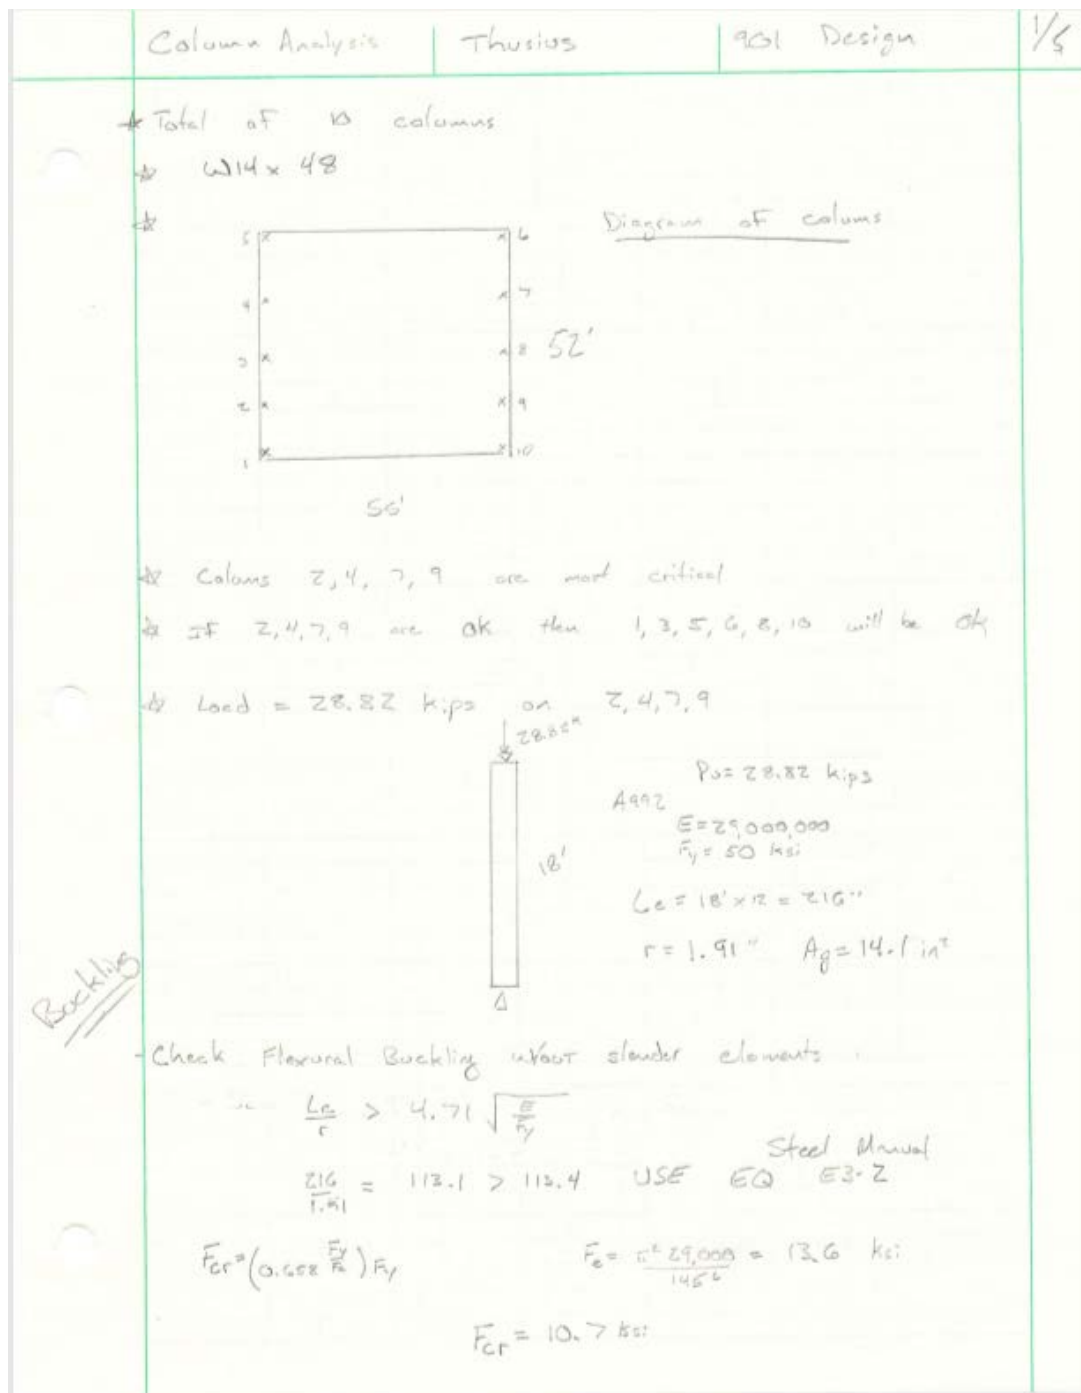 Column Analysis Thusius 901 Design 1/5
Total of 10 columns
W14 x 48
Diagram of colums
5 6
4 7
3 8 52'
2 9
1 10
55'
Colums 2, 4, 7, 9 are most critical
If 2,4,7,9 are ok then 1, 3, 5, 6, 8, 10 will be ok
Load = 28.82 kips on 2,4,7,9
28.82ᴷ
Pu = 28.82 kips
A992
E = 29,000,000
Fy = 50 ksi
18'
Lc = 18' x 12 = 216"
r = 1.91" Ag = 14.1 in²
Buckling
- Check Flexural Buckling w/out slender elements
Lc/r > 4.71 √(E/Fy)
Steel Manual
216/1.91 = 113.1 > 113.4 USE EQ E3-2
Fcr = (0.658^(Fy/Fe)) Fy Fe = π² 29,000 / 145² = 13.6 ksi
Fcr = 10.7 ksi